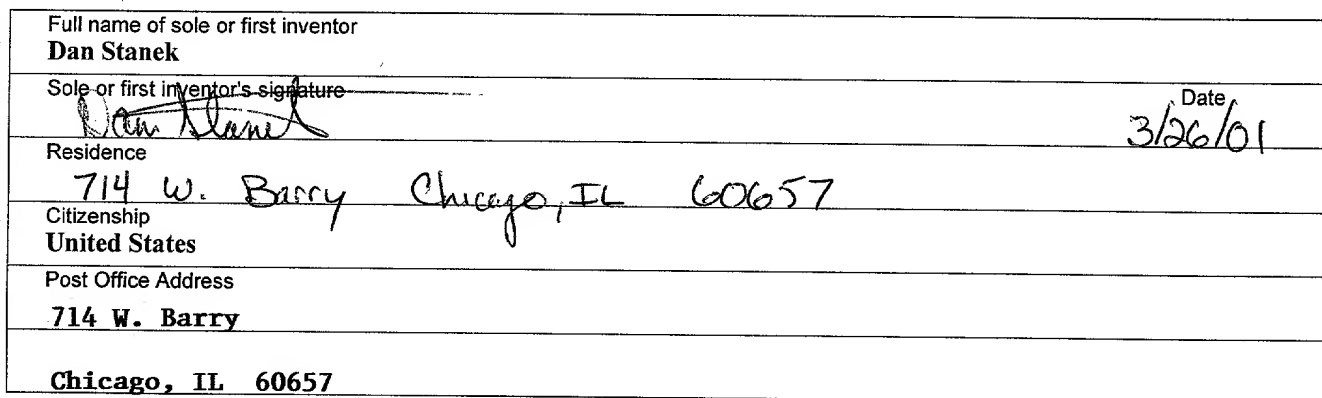 Full name of sole or first inventor
Dan Stanek
Sole or first inventor's signature
Date
Dan Stanek
3/26/01
Residence
714 W. Barry Chicago, IL 60657
Citizenship
United States
Post Office Address
714 W. Barry
Chicago, IL 60657